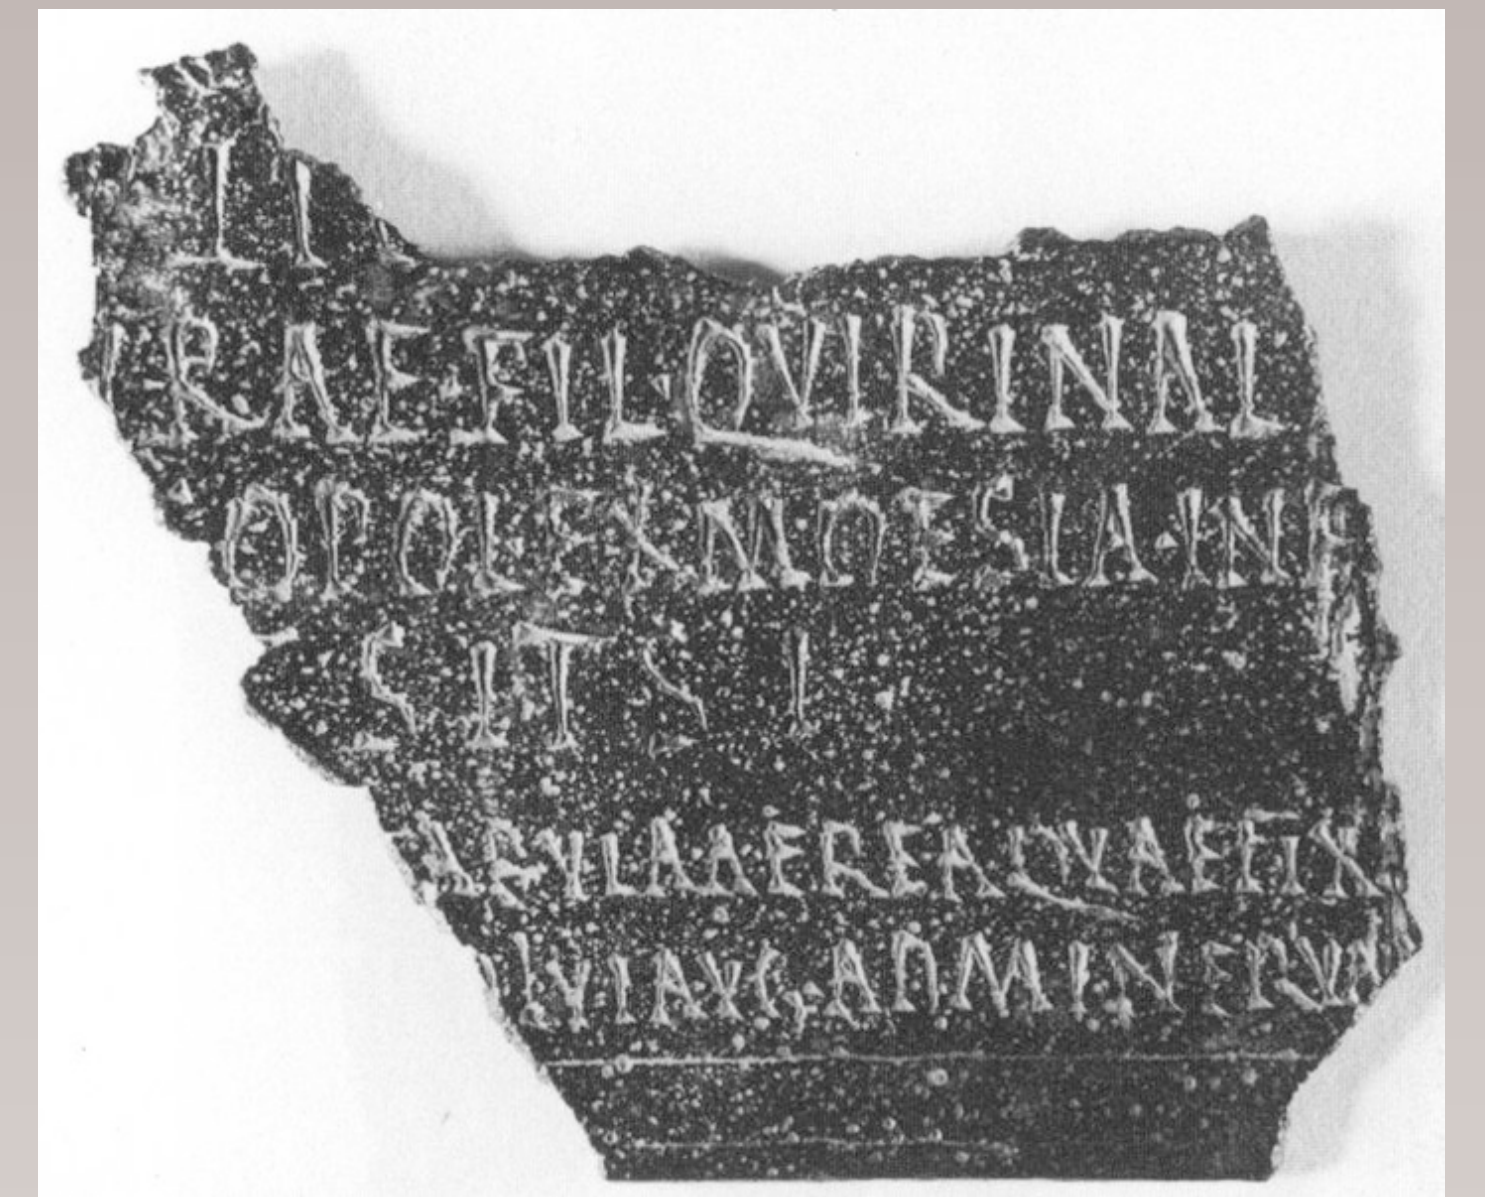 I I
IRAE FIL QVIRINAL
OPOL EX MOESIA · INF
S I T S I
ABVLA AEREA QVAE FIX
IVI AVG AD MINERVA